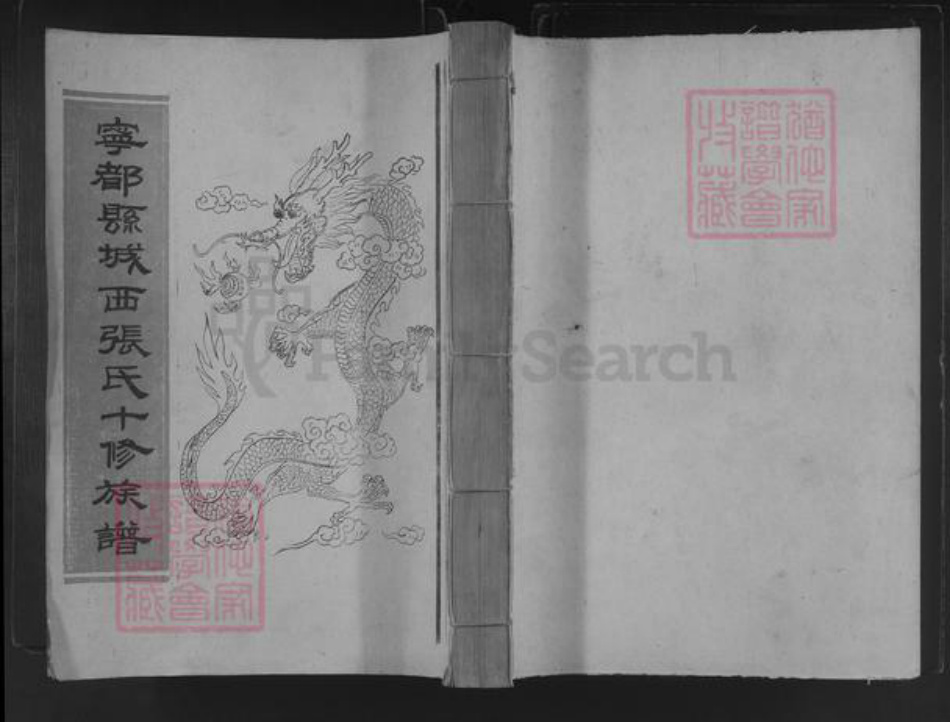 寧都縣城西張氏十修族譜
猶他家
譜學會
收藏
FamilySearch
猶他家
譜學會
收藏